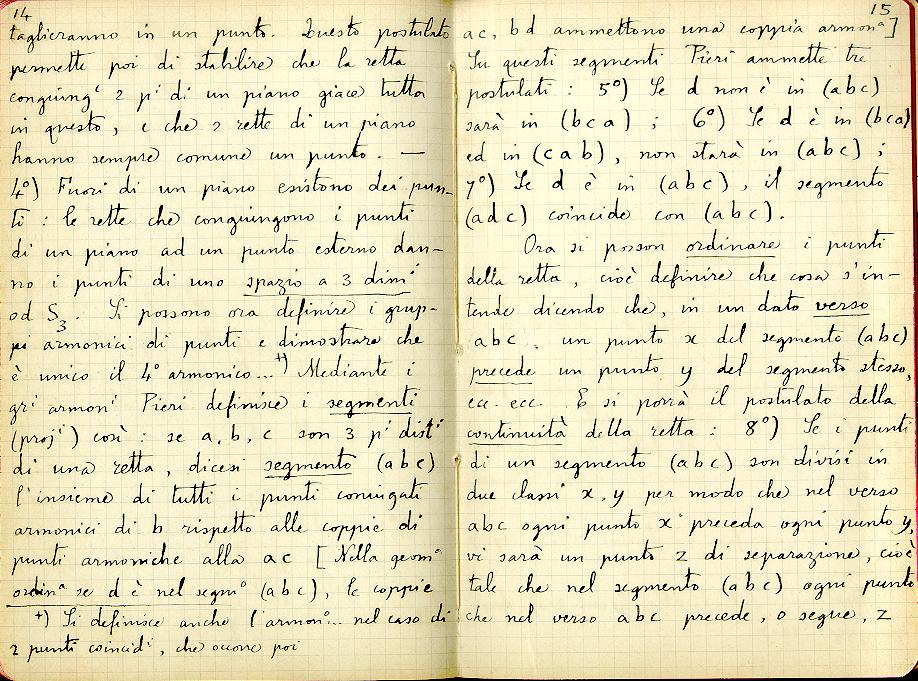 14
taglieranno in un punto. Questo postulato
permette poi di stabilire che la retta
congiungᵗᵉ 2 pⁱ di un piano giace tutta
in questo, e che 2 rette di un piano
hanno sempre comune un punto. —
4°) Fuori di un piano esistono dei pun-
ti : le rette che congiungono i punti
di un piano ad un punto esterno dan-
no i punti di uno spazio a 3 dimⁱ
od S₃. Si possono ora definire i grup-
pi armonici di punti e dimostrare che
è unico il 4° armonico...⁺⁾ Mediante i
grⁱ armonⁱ Pieri definisce i segmenti
(projⁱ) così : se a, b, c son 3 pⁱ distⁱ
di una retta, dicesi segmento (abc)
l'insieme di tutti i punti coniugati
armonici di b rispetto alle coppie di
punti armoniche alla ac [Nella geomᵃ
ordinᵃ se d è nel segmᵒ (abc), le coppie
+) Si definisce anche l'armonᵒ... nel caso di
2 punti coincidⁱ, che occorre poi
15
ac, bd ammettono una coppia armonᵃ]
Su questi segmenti Pieri ammette tre
postulati : 5°) Se d non è in (abc)
sarà in (bca) ; 6°) Se d è in (bca)
ed in (cab), non starà in (abc) ;
7°) Se d è in (abc), il segmento
(adc) coincide con (abc).
Ora si posson ordinare i punti
della retta, cioè definire che cosa s'in-
tende dicendo che, in un dato verso
abc, un punto x del segmento (abc)
precede un punto y del segmento stesso,
ecc. ecc. E si porrà il postulato della
continuità della retta : 8°) Se i punti
di un segmento (abc) son divisi in
due classi x, y per modo che nel verso
abc ogni punto x preceda ogni punto y,
vi sarà un punto z di separazione, cioè
tale che nel segmento (abc) ogni punto
che nel verso abc precede, o segue, z